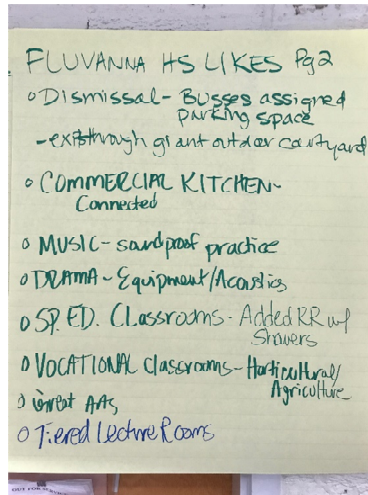 FLUVANNA HS LIKES Pg2
o Dismissal - Busses assigned
parking space
- exit through giant outdoor courtyard
o COMMERCIAL KITCHEN -
Connected
o MUSIC - soundproof practice
o DRAMA - Equipment/Acoustics
o SP. ED. Classrooms - Added RR w/
Showers
o VOCATIONAL Classrooms - Horticultural/
Agriculture
o Great
o Tiered Lecture Rooms
OUT FOR